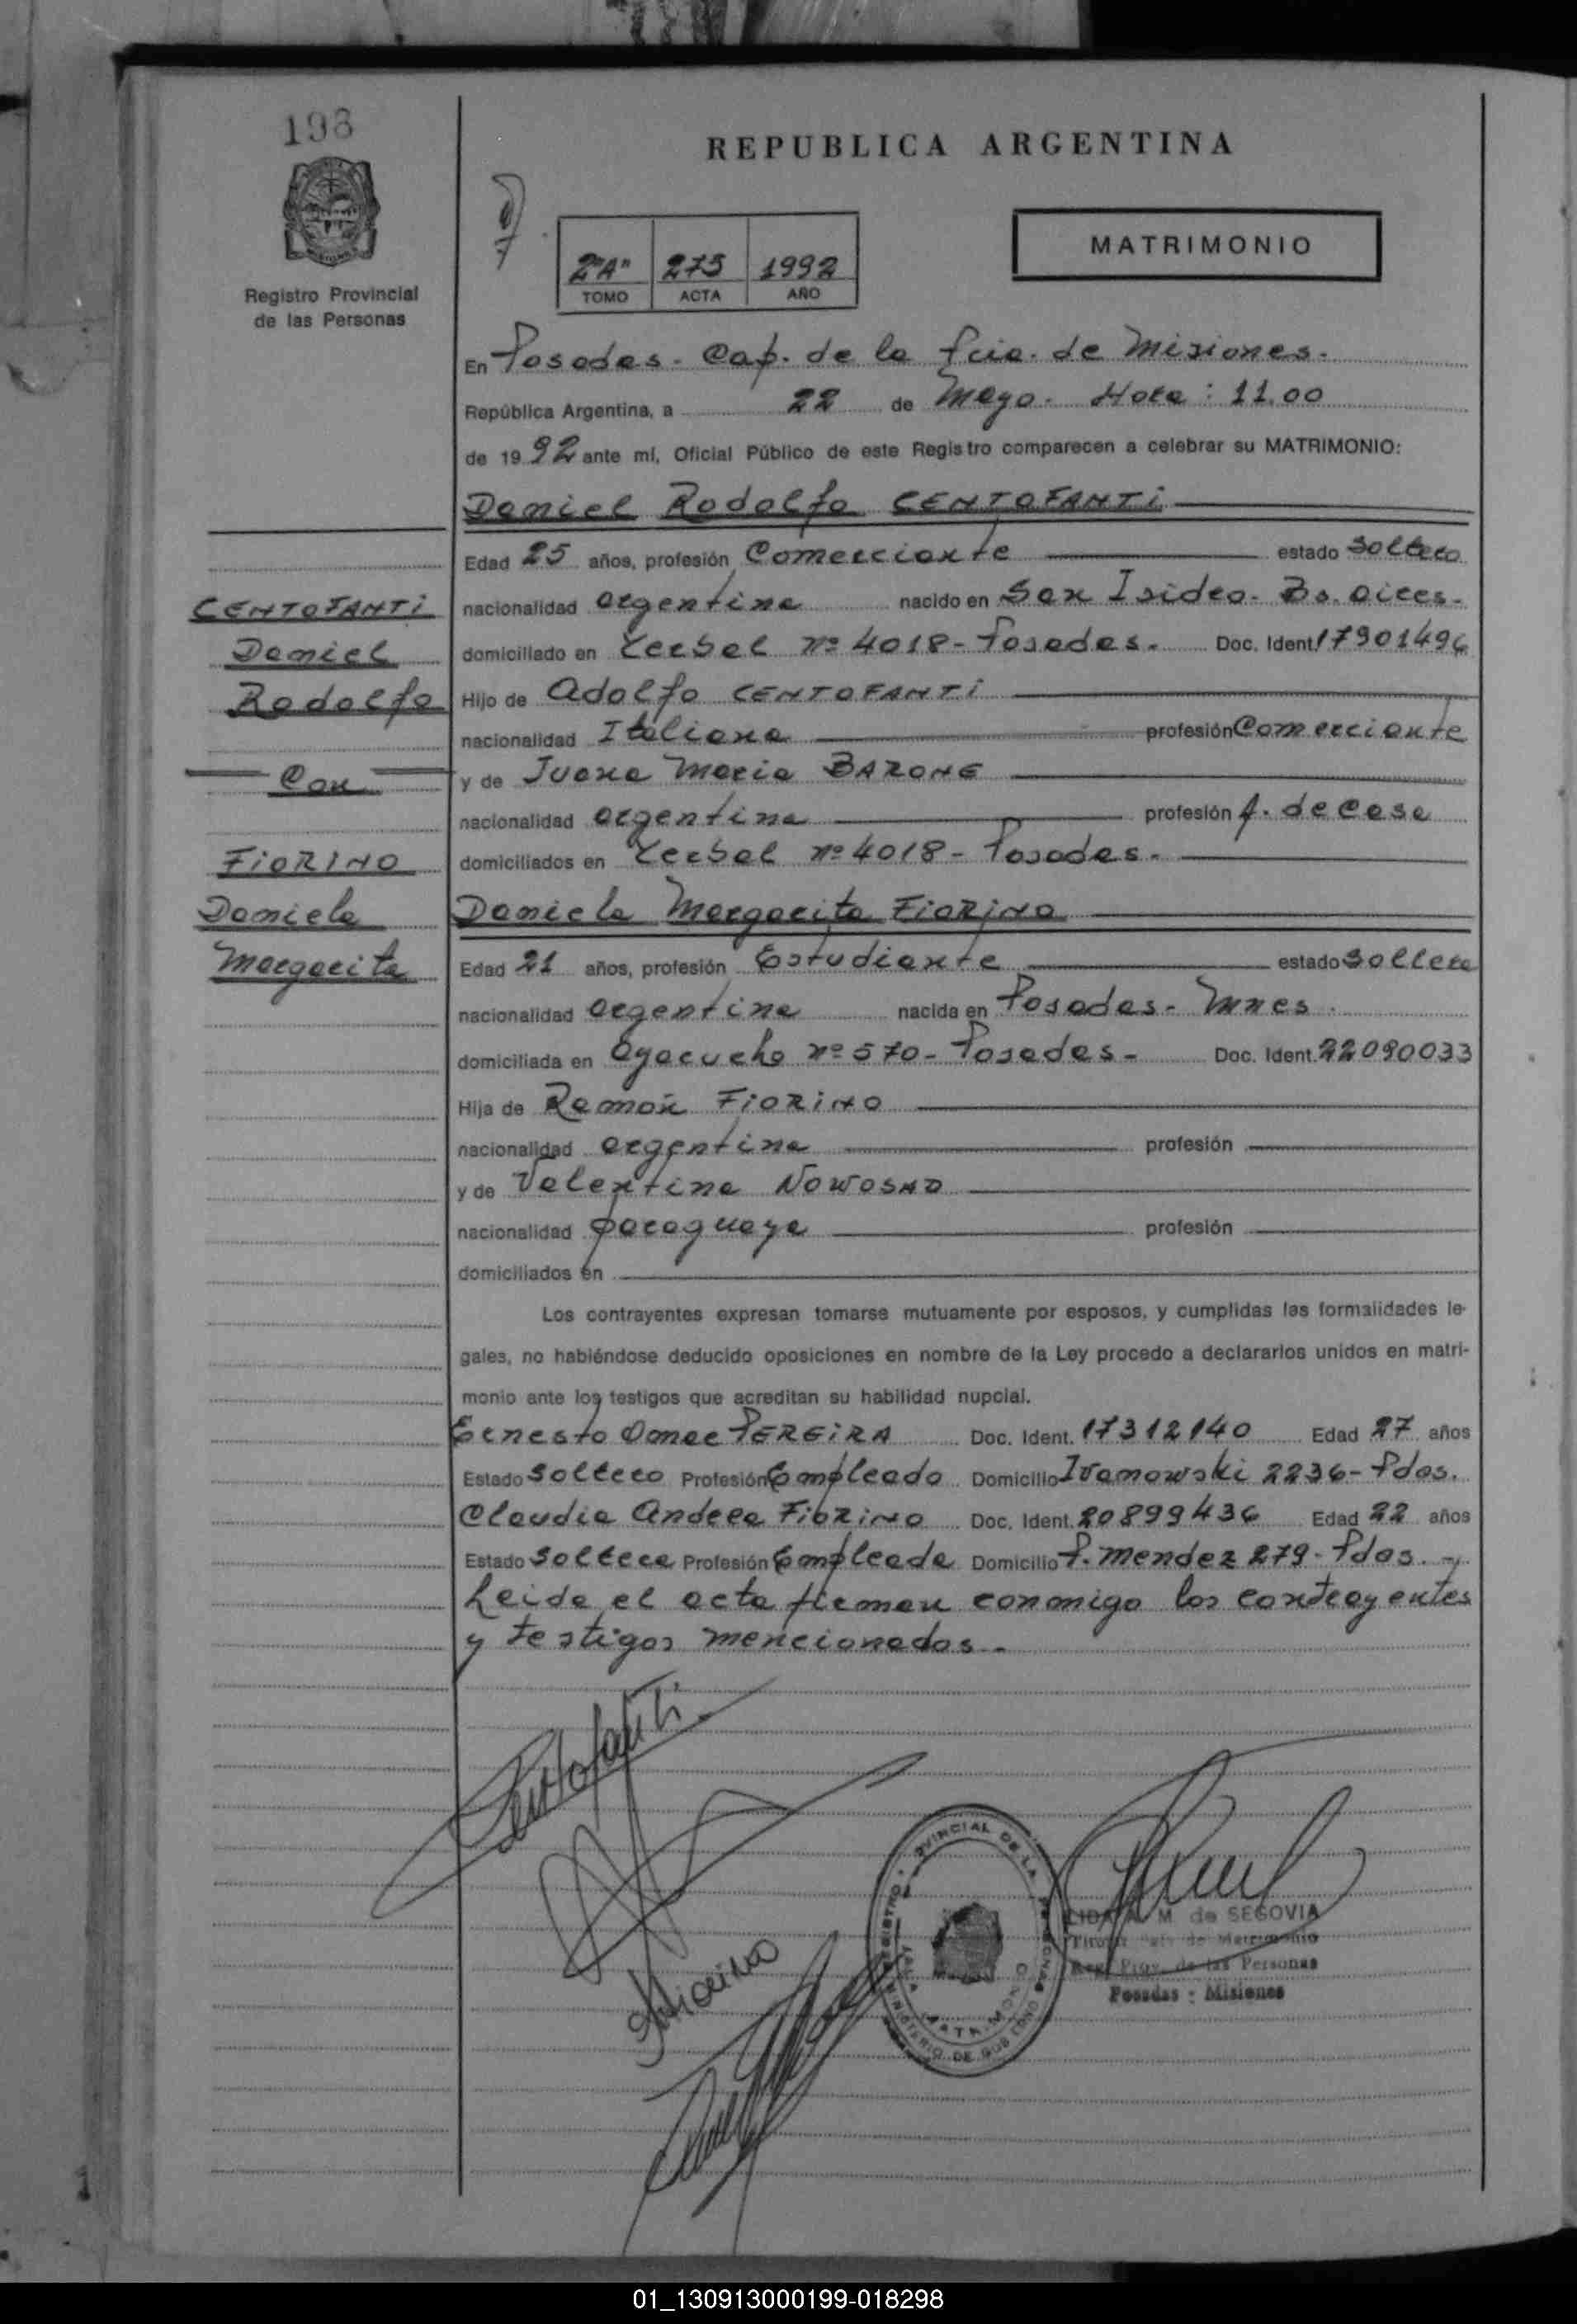 198
REPUBLICA ARGENTINA
MATRIMONIO
2"A" 275 1992
TOMO ACTA AÑO
Registro Provincial
de las Personas
En Posadas - Cap. de la Pcia. de Misiones.
República Argentina, a 22 de Mayo. Hora: 11.00
de 1992 ante mí, Oficial Público de este Registro comparecen a celebrar su MATRIMONIO:
Daniel Rodolfo CENTOFANTI
Edad 25 años, profesión Comerciante estado soltero
nacionalidad argentina nacido en San Isidro. Bs. aires.
domiciliado en Yerbal nº 4018 - Posadas. Doc. Ident. 17901496
Hijo de Adolfo CENTOFANTI
nacionalidad Italiana profesión Comerciante
y de Juana Maria BARONE
nacionalidad argentina profesión A. de Casa
domiciliados en Yerbal nº 4018 - Posadas.
Daniela Margarita FIORINO
Edad 21 años, profesión Estudiante estado soltera
nacionalidad argentina nacida en Posadas - Mnes.
domiciliada en Ayacucho nº 570 - Posadas - Doc. Ident. 22090033
Hija de Ramón FIORINO
nacionalidad argentina profesión
y de Valentina NOWOSAD
nacionalidad paraguaya profesión
domiciliados en
Los contrayentes expresan tomarse mutuamente por esposos, y cumplidas las formalidades le-
gales, no habiéndose deducido oposiciones en nombre de la Ley procedo a declararlos unidos en matri-
monio ante los testigos que acreditan su habilidad nupcial.
Ernesto Omar PEREIRA Doc. Ident. 17312140 Edad 27 años
Estado soltero Profesión Empleado Domicilio Ivanowski 2236 - Pdas.
Claudia Andrea FIORINO Doc. Ident. 20899436 Edad 22 años
Estado soltera Profesión Empleada Domicilio P. Mendez 279 - Pdas. -
Leida el acta firman conmigo los contrayentes
y testigos mencionados.-
CENTOFANTI
Daniel
Rodolfo
Con
FIORINO
Daniela
Margarita
Centofanti
Fiorino
M. de SEGOVIA
de Matrimonio
Reg. Prov. de las Personas
Posadas : Misiones
01_130913000199-018298